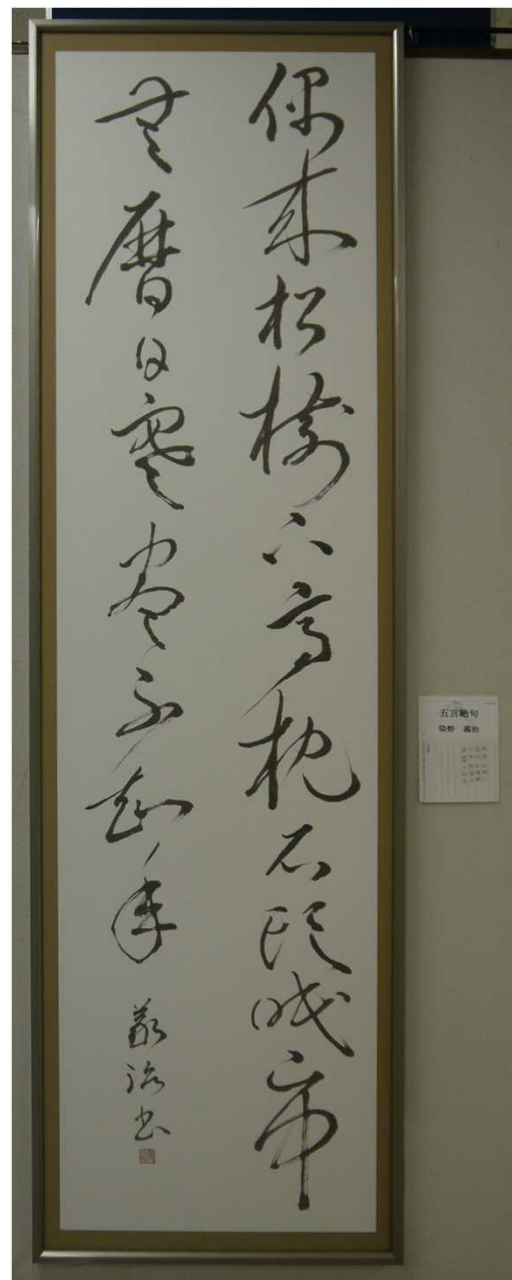 偶来松樹下高枕石頭眠山中
無暦日寒尽不知年
義治書
五言絶句
義治